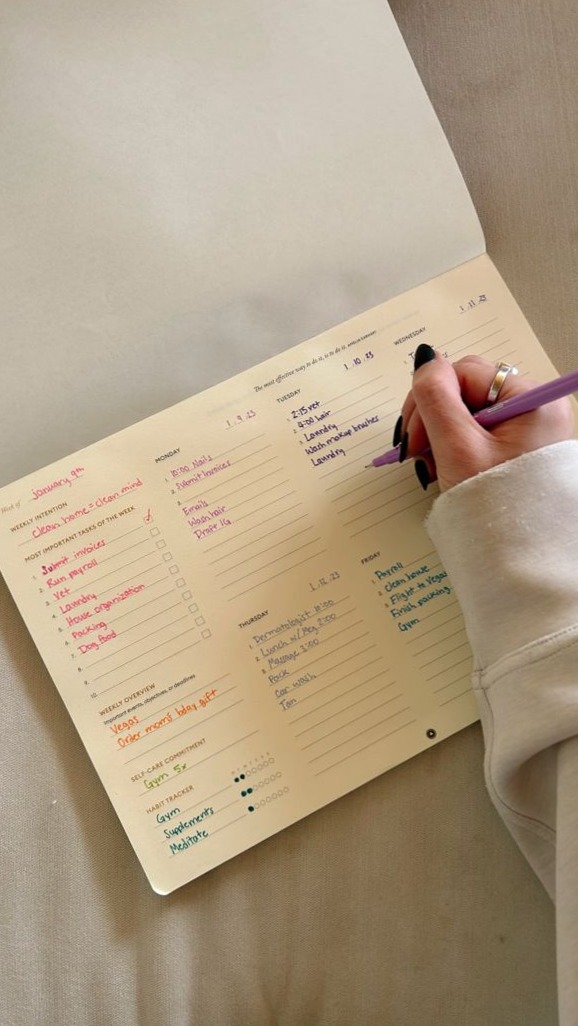 The most effective way to do it, is to do it.
Week of January 9th
WEEKLY INTENTION
clean home = clean mind
MOST IMPORTANT TASKS OF THE WEEK
1. Submit invoices
2. Run payroll
3. Vet
4. Laundry
5. House organization
6. Packing
7. Dog food
8.
9.
10.
WEEKLY OVERVIEW
important events, objectives, or deadlines
Vegas
Order mom's bday gift
SELF-CARE COMMITMENT
Gym 5x
HABIT TRACKER
M T W T F S S
Gym
Supplements
Meditate
MONDAY
1.9.23
1. 10:00 Nails
2. Submit invoices
3.
Emails
Wash hair
Draft IG
TUESDAY
1.10.23
1. 2:15 vet
2. 4:00 hair
3. Laundry
Wash makeup brushes
Laundry
WEDNESDAY
1.11.23
1.
THURSDAY
1.12.23
1. Dermatologist 10:00
2. Lunch w/ Meg 2:00
3. Massage 3:00
Pack
Car wash
Tan
FRIDAY
1. Payroll
2. Clean house
3. Flight to Vegas
Finish packing
Gym